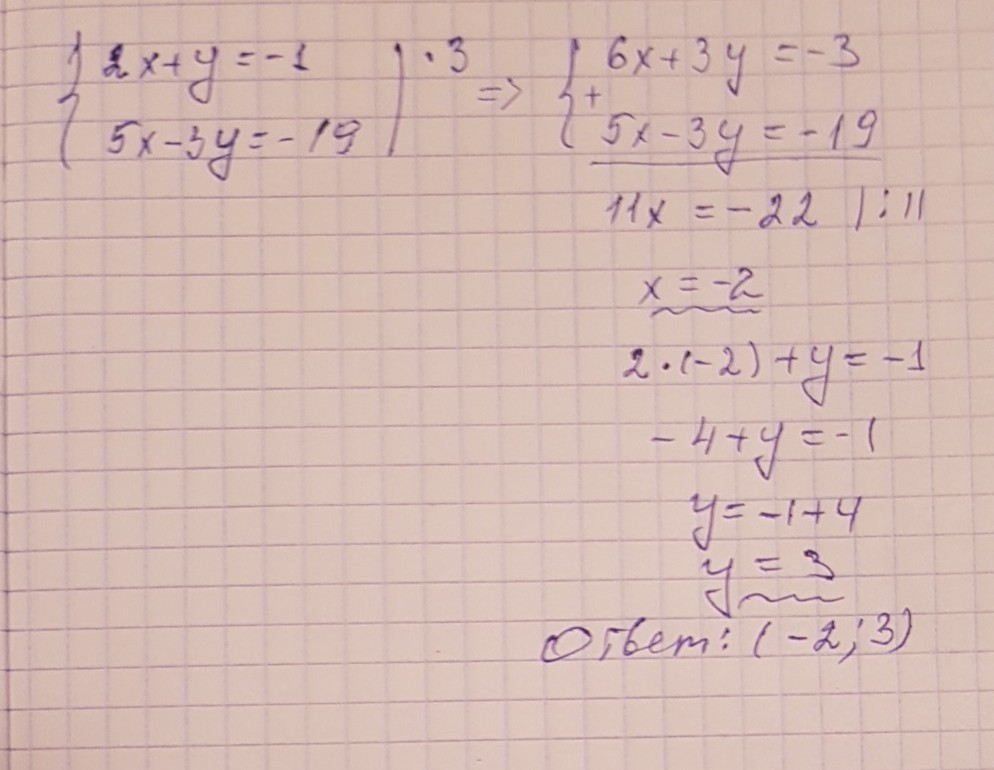 { 2x+y=-1 | ·3 => { 6x+3y=-3
5x-3y=-19 | + 5x-3y=-19
11x=-22 |:11
x=-2
2·(-2)+y=-1
-4+y=-1
y=-1+4
y=3
Ответ: (-2;3)